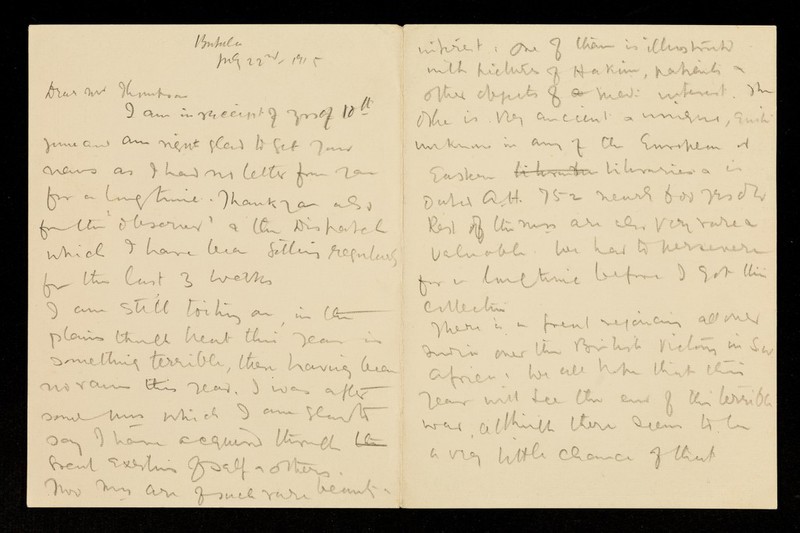 July 22nd, 1915
Dear Mr Thompson
I am in receipt of yrs of 10th
June and am right glad to get your
news as I had no letter from you
for a long time. Thank you also
for the 'Observer' & the Dispatch
which I have been getting regularly
for the last 3 weeks
I am still toiling on, in the
plains though heat this year is
something terrible, there having been
no rains this year. I was after
some mss which I am glad to
say I have acquired through the
great exertion of self & others.
Two mss are of such rare beauty &
interest. One of them is illustrated
with pictures of Hakim, patients &
other objects of a medi: interest. The
other is very ancient & unique, quite
unknown in any of the European or
Eastern libraries & is
dated A.H. 752 nearly 600 yrs old
Rest of the mss are also very rare &
valuable. We had to persevere
for a long time before I got this
collection
There is a great rejoicing all over
India over the British victory in SW
Africa. We all hope that this
year will see the end of this terrible
war, although there seems to be
a very little chance of that